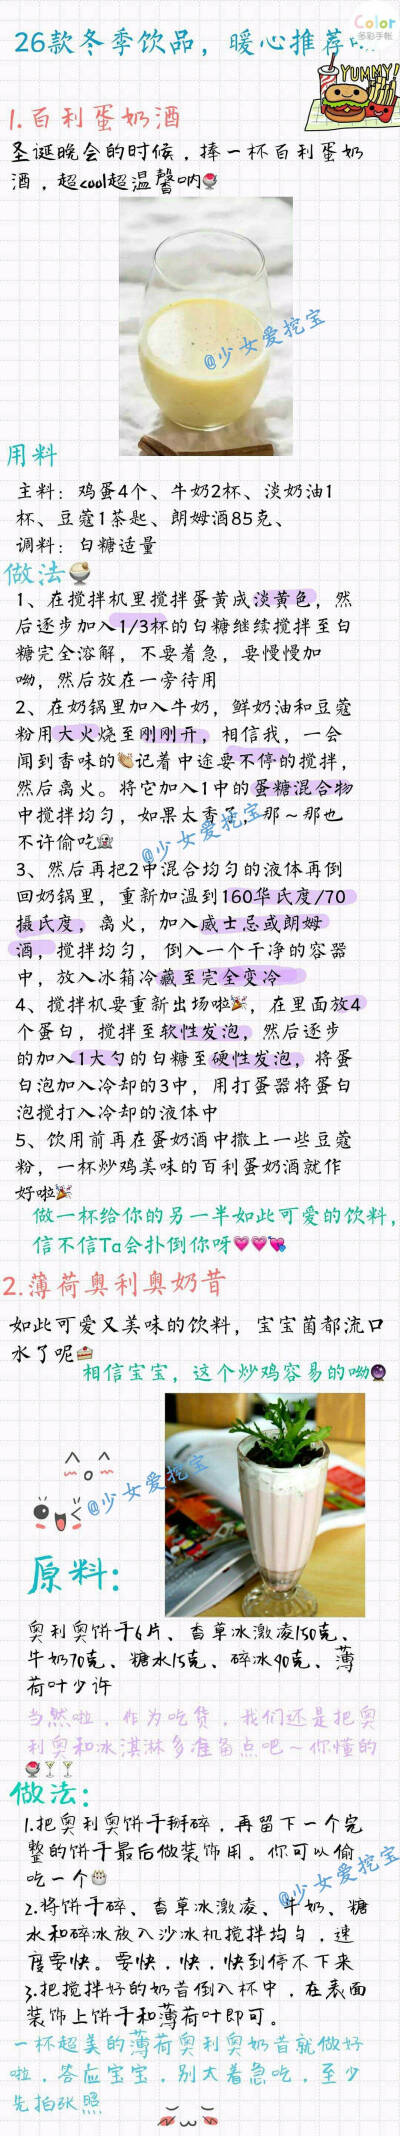 Color
多彩手帐
26款冬季饮品，暖心推荐
YUMMY!
1.百利蛋奶酒
圣诞晚会的时候，捧一杯百利蛋奶
酒，超cool超温馨呐
@少女爱挖宝
用料
主料：鸡蛋4个、牛奶2杯、淡奶油1
杯、豆蔻1茶匙、朗姆酒85克、
调料：白糖适量
做法
1、在搅拌机里搅拌蛋黄成淡黄色，然
后逐步加入1/3杯的白糖继续搅拌至白
糖完全溶解，不要着急，要慢慢加
呦，然后放在一旁待用
2、在奶锅里加入牛奶，鲜奶油和豆蔻
粉用大火烧至刚刚开，相信我，一会
闻到香味的记着中途要不停的搅拌，
然后离火。将它加入1中的蛋糖混合物
中搅拌均匀，如果太香了，那～那也
不许偷吃
@少女爱挖宝
3、然后再把2中混合均匀的液体再倒
回奶锅里，重新加温到160华氏度/70
摄氏度，离火，加入威士忌或朗姆
酒，搅拌均匀，倒入一个干净的容器
中，放入冰箱冷藏至完全变冷
4、搅拌机要重新出场啦，在里面放4
个蛋白，搅拌至软性发泡，然后逐步
的加入1大勺的白糖至硬性发泡，将蛋
白泡加入冷却的3中，用打蛋器将蛋白
泡搅打入冷却的液体中
5、饮用前再在蛋奶酒中撒上一些豆蔻
粉，一杯炒鸡美味的百利蛋奶酒就作
好啦
做一杯给你的另一半如此可爱的饮料，
信不信Ta会扑倒你呀
2.薄荷奥利奥奶昔
如此可爱又美味的饮料，宝宝菌都流口
水了呢
相信宝宝，这个炒鸡容易的呦
@少女爱挖宝
原料：
奥利奥饼干6片、香草冰激凌150克、
牛奶70克、糖水15克、碎冰90克、薄
荷叶少许
当然啦，作为吃货，我们还是把奥
利奥和冰淇淋多准备点吧～你懂的
做法：
1.把奥利奥饼干掰碎，再留下一个完
整的饼干最后做装饰用。你可以偷
吃一个
@少女爱挖宝
2.将饼干碎、香草冰激凌、牛奶、糖
水和碎冰放入沙冰机搅拌均匀，速
度要快。要快，快，快到停不下来
3.把搅拌好的奶昔倒入杯中，在表面
装饰上饼干和薄荷叶即可。
一杯超美的薄荷奥利奥奶昔就做好
啦，答应宝宝，别太着急吃，至少
先拍张照